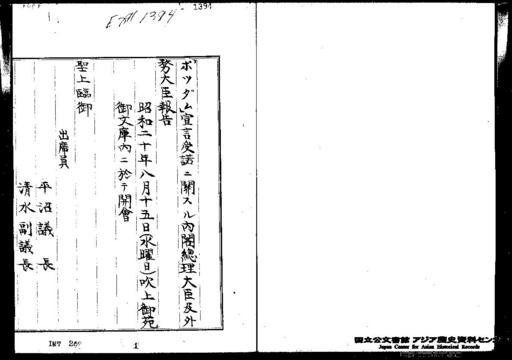 1394
Exh 1394
「ポツダム」宣言受諾ニ關スル內閣總理大臣及外
務大臣報告
昭和二十年八月十五日(水曜日)吹上御苑
御文庫內ニ於テ開會
聖上臨御
出席員
平沼議長
清水副議長
1
国立公文書館 アジア歴史資料センター
Japan Center for Asian Historical Records